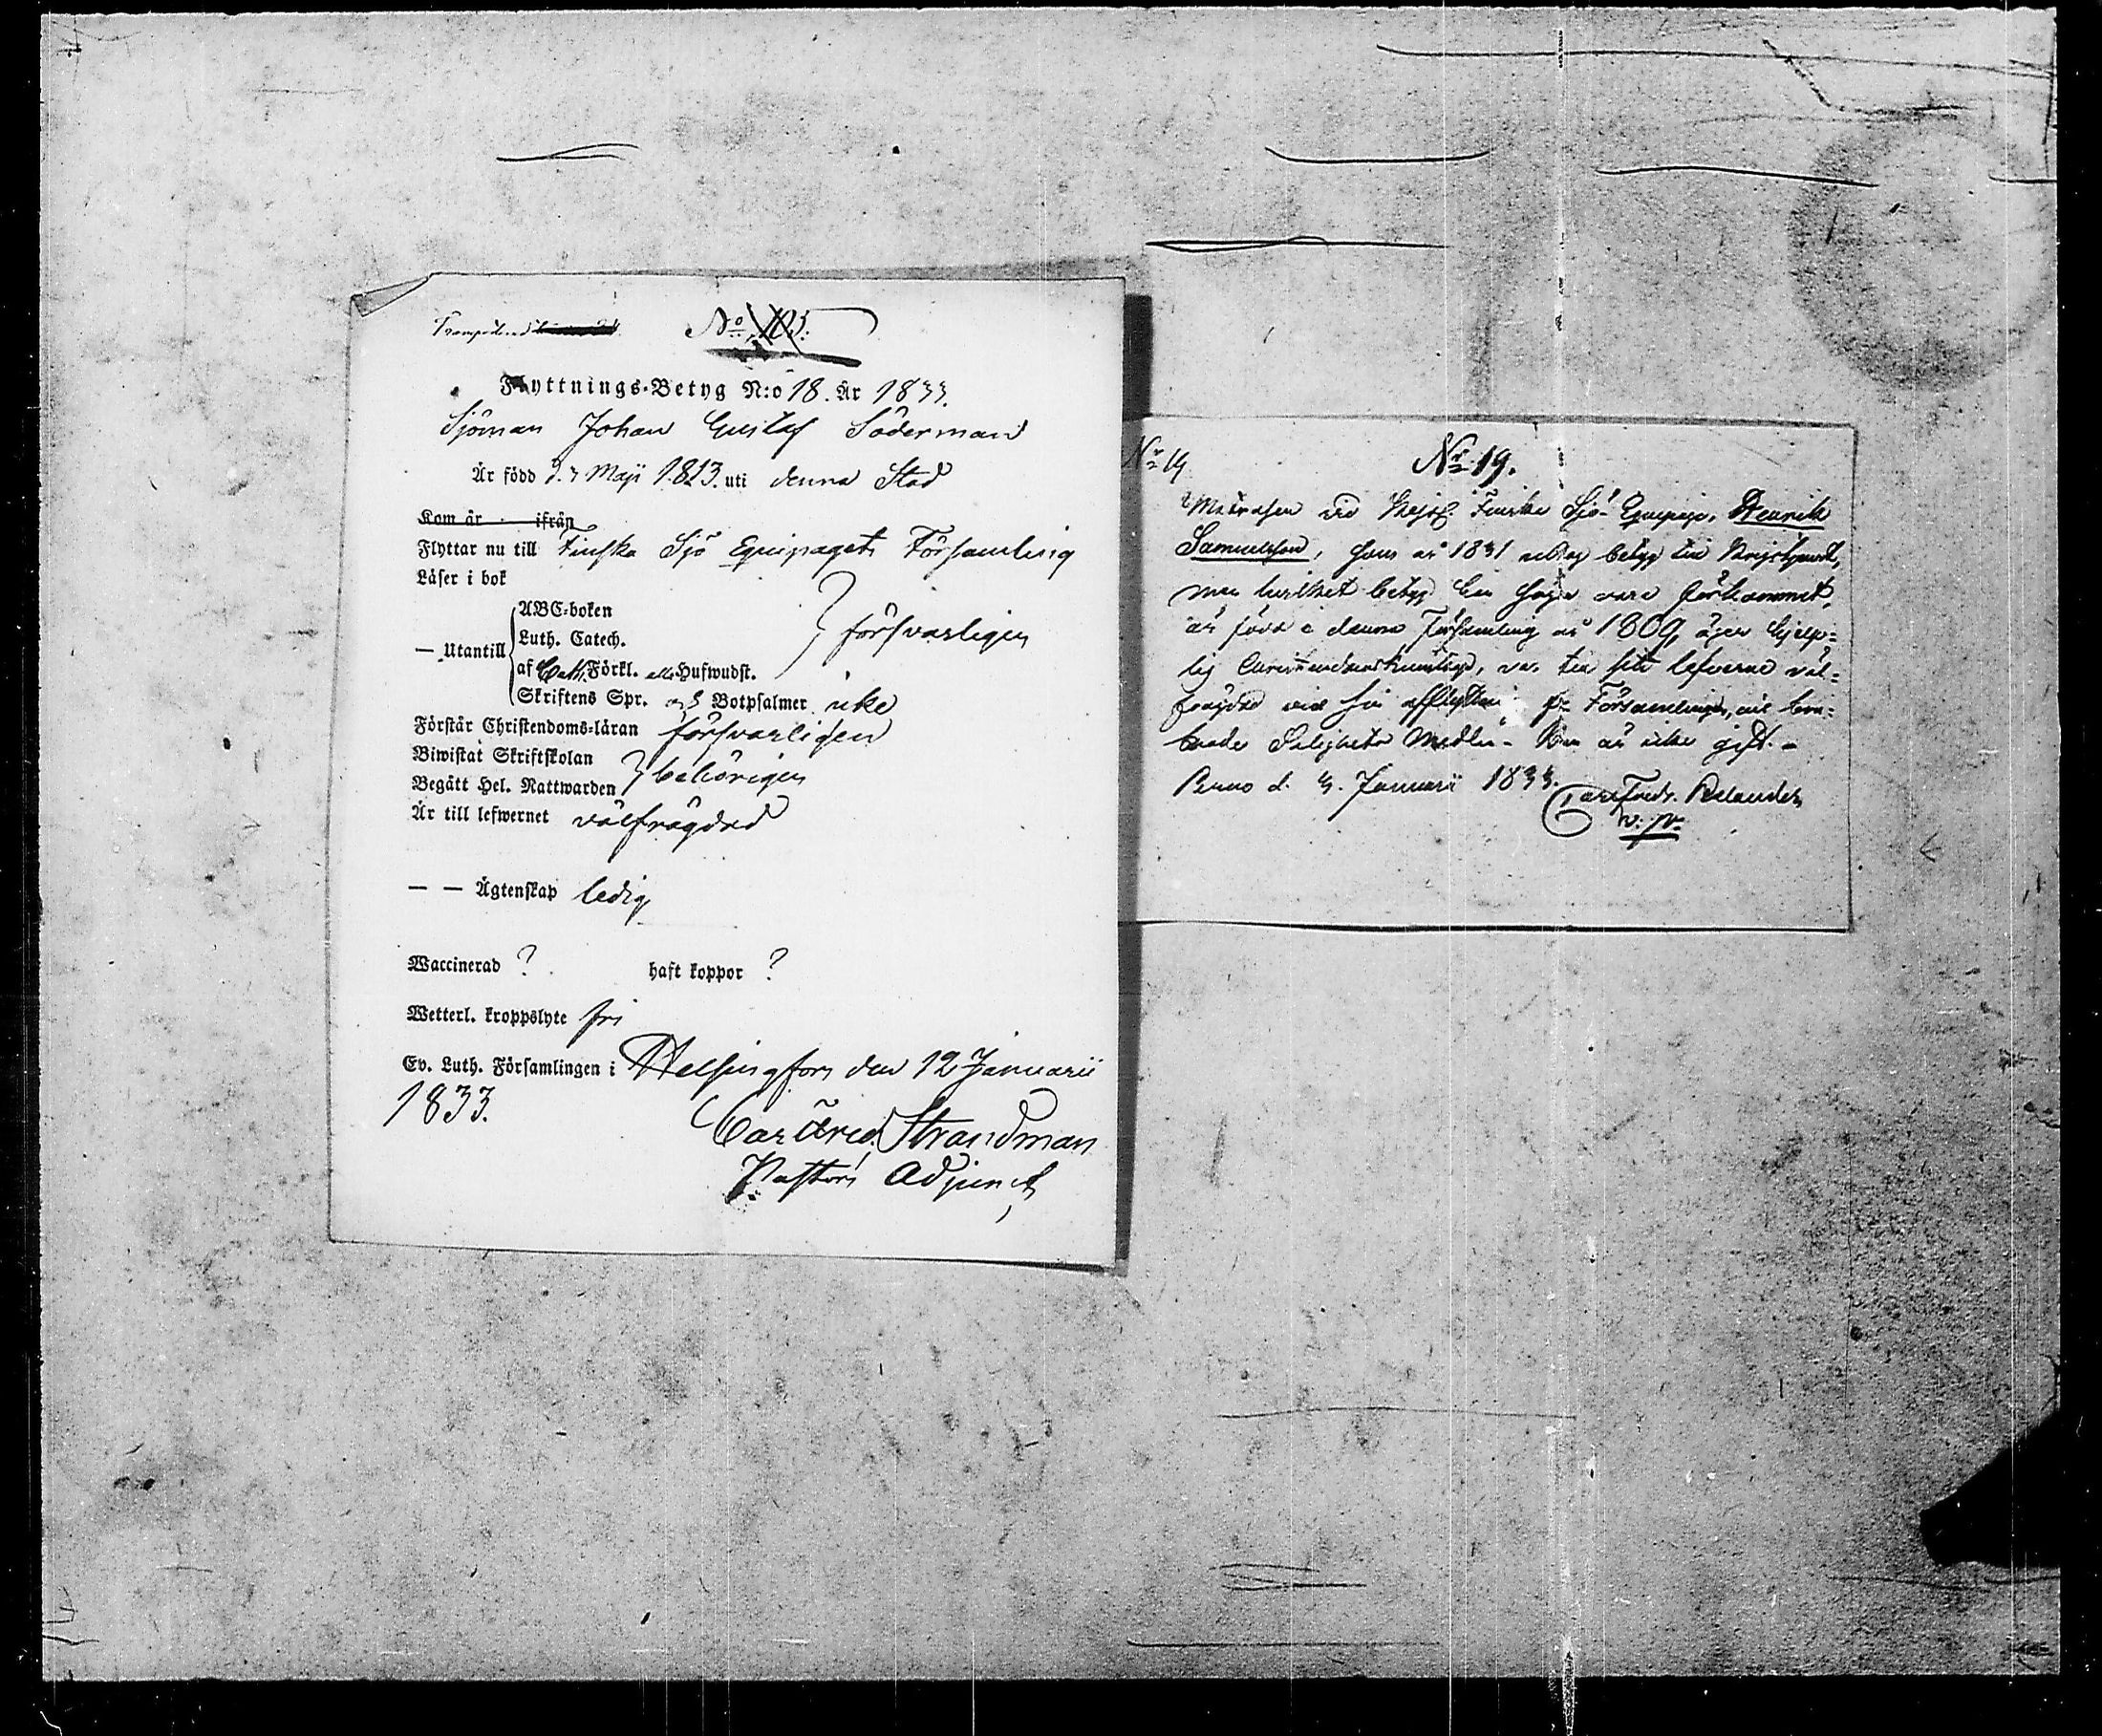 No 105.
Flyttnings-Betyg N:o 18. År 1833.
Sjöman Johan Gustaf Söderman
Är född d. 7 Maji 1813. uti denna Stad
Kom år ifrån
Flyttar nu till Finska Sjö Equipagets Församling
Läser i bok
ABC-boken
Luth. Catech.
— Utantill
försvarligen
af Cath. Förkl. Hufwudst.
Skriftens Spr. och Botpsalmer icke
Förstår Christendoms-läran försvarligen
Biwistat Skriftskolan
Begått Hel. Nattwarden behörigen
Är till lefwernet välfrägdad
— — Ägtenskap ledig
Waccinerad ? haft koppor ?
Wetterl. kroppslyte fri
Ev. Luth. Församlingen i Helsingfors den 12 Januarii
1833.
Carl Fred. Strandman
Pastors Adjunct
No 19
No 19.
Matrosen vid Kejs. Finska Sjö-Equipage, Henrik
Samuelsson, som år 1831 betyg till
men hvilket betyg här säges vara förkommet,
är född i denna Församling år 1809, äger hjelp-
lig Christendomskunskap, var till sitt lefverne väl-
frägdad vid sin afflyttning fr. Församlingen, och bru-
kade Salighets Medlen. Han är icke gift. -
d. 4. Januarii 1833.
Carl Fredr. Relander
v. p.